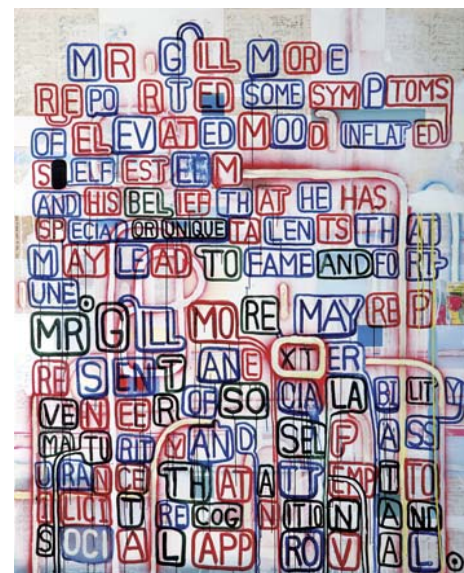 MR GILL MORE
REPORTED SOME SYMPTOMS
OF ELEVATED MOOD INFLATED
SELF ESTEEM
AND HIS BELIEF THAT HE HAS
SPECIAL OR UNIQUE TALENTS THAT
MAY LEAD TO FAME AND FORT-
UNE.
MR GILL MORE MAY REP
RESENT AN EXTER
VENEER OF SOCIALABILITY
MATURITY AND SELF ASS
URANCE THAT ATTEMPT TO
ILICIT RECOGNITION AND
SOCIAL APPROVAL.